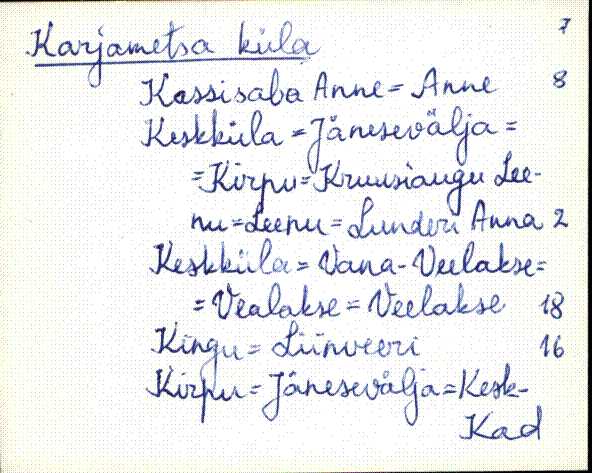 7
Karjametsa küla
Kassisaba Anne = Anne 8
Keskküla = Jänesevälja =
= Kirpu = Kruusiaugu Lee-
nu = Leenu = Lunderi Anna 2
Keskküla = Vana-Veelakse =
= Vealakse = Veelakse 18
Kingu = Liinveeri 16
Kirpu = Jänesevälja = Kesk-
Kad